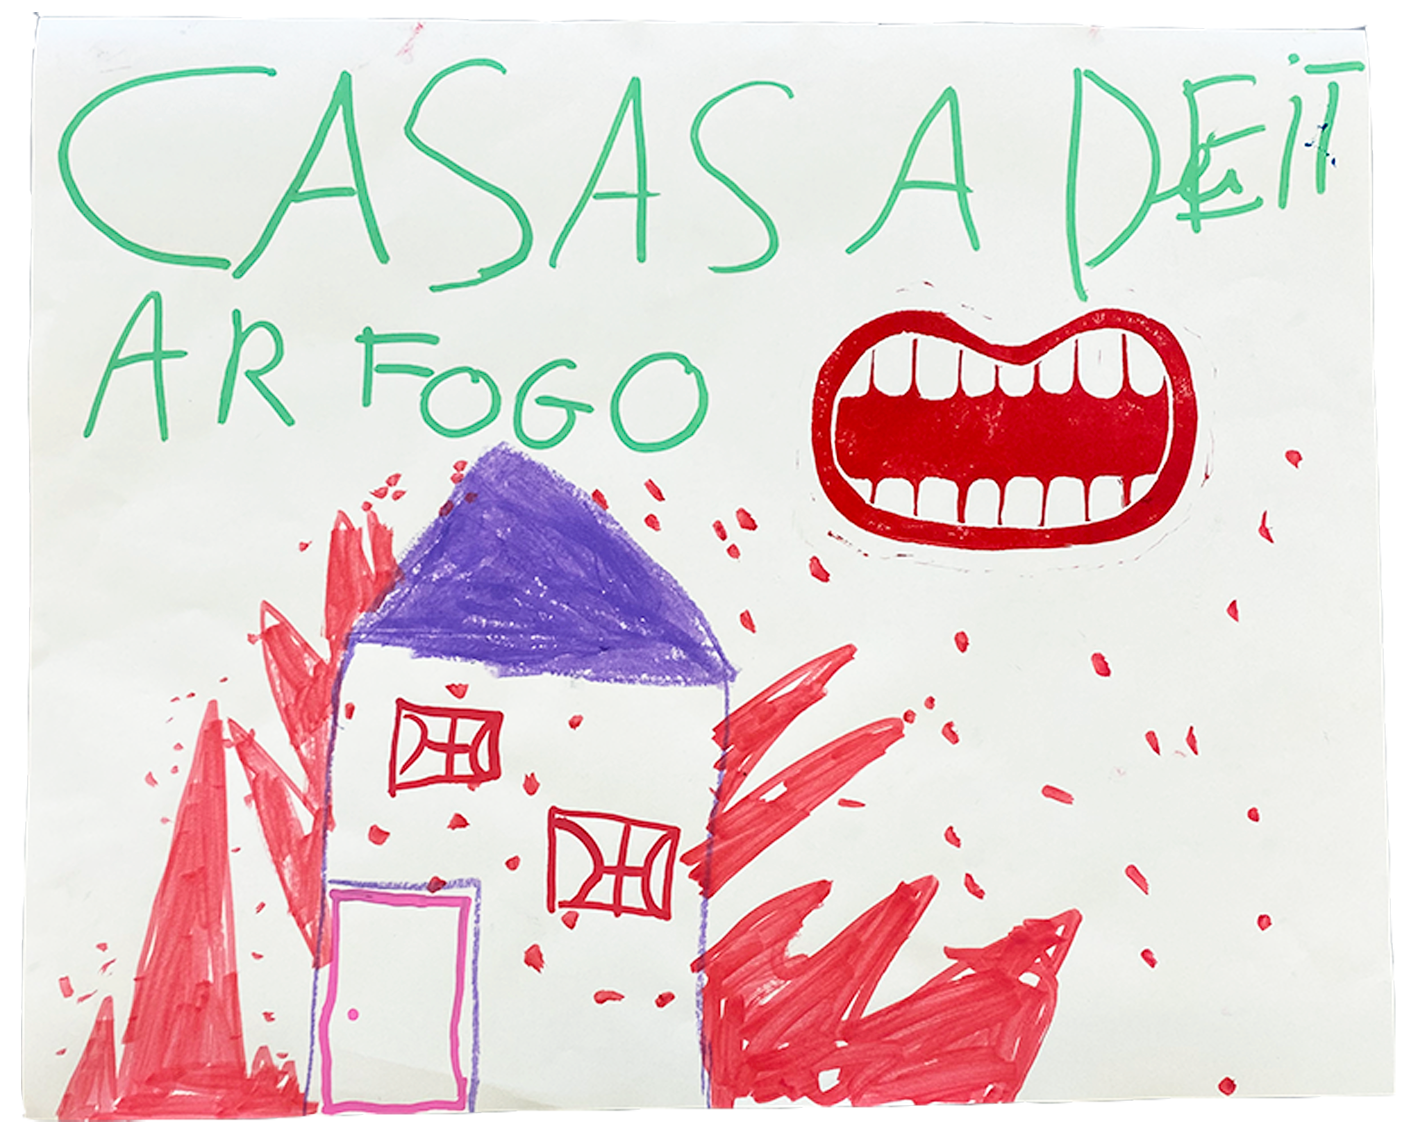 CASAS A DEiT
AR FOGO